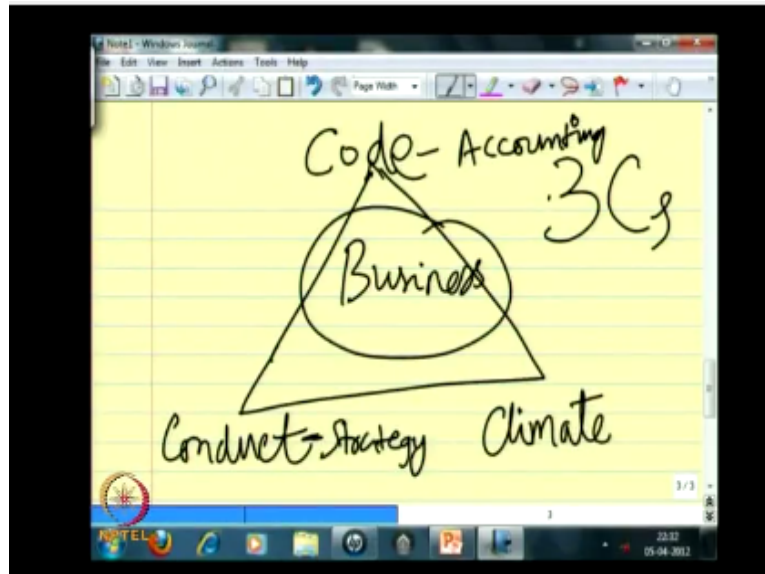 Note1 - Windows Journal
File Edit View Insert Actions Tools Help
Page Width
Code - Accounting
3Cs
Business
Conduct - Strategy
Climate
3/3
3
NPTEL
22:32
05-04-2012